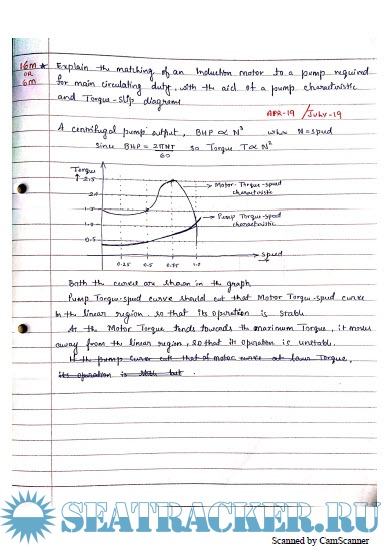 16m * Explain the matching of an Induction motor to a pump required
OR
6m
for main circulating duty, with the aid of a pump characteristic
and Torque-Slip diagram
APR-19 / JULY-19
A centrifugal pump output, BHP ∝ N³ where N=speed
Since BHP = 2πNT/60 so Torque T ∝ N²
Torque
2.5
Motor-Torque-speed
characteristic
2.0
1.5
Pump Torque-speed
characteristic
1.0
0.5
0.25 0.5 0.75 1.0
speed
Both the curves are shown in the graph
Pump Torque-speed curve should cut that Motor Torque-speed curve
in the linear region so that its operation is stable
As the Motor Torque tends towards the maximum Torque, it moves
away from the linear region, so that its operation is unstable.
If the pump curve cuts that of motor curve at lower Torque,
its operation is but
SEATRACKER.RU
Scanned by CamScanner